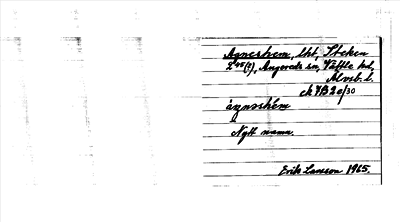 Agneshem, lht, Stecken
2⁴⁸(?), Angereds sn, Vättle hd,
Älvsb. l.
ek 7B 2e/30
ágnəshém
Nytt namn.
Erik Larsson 1965.